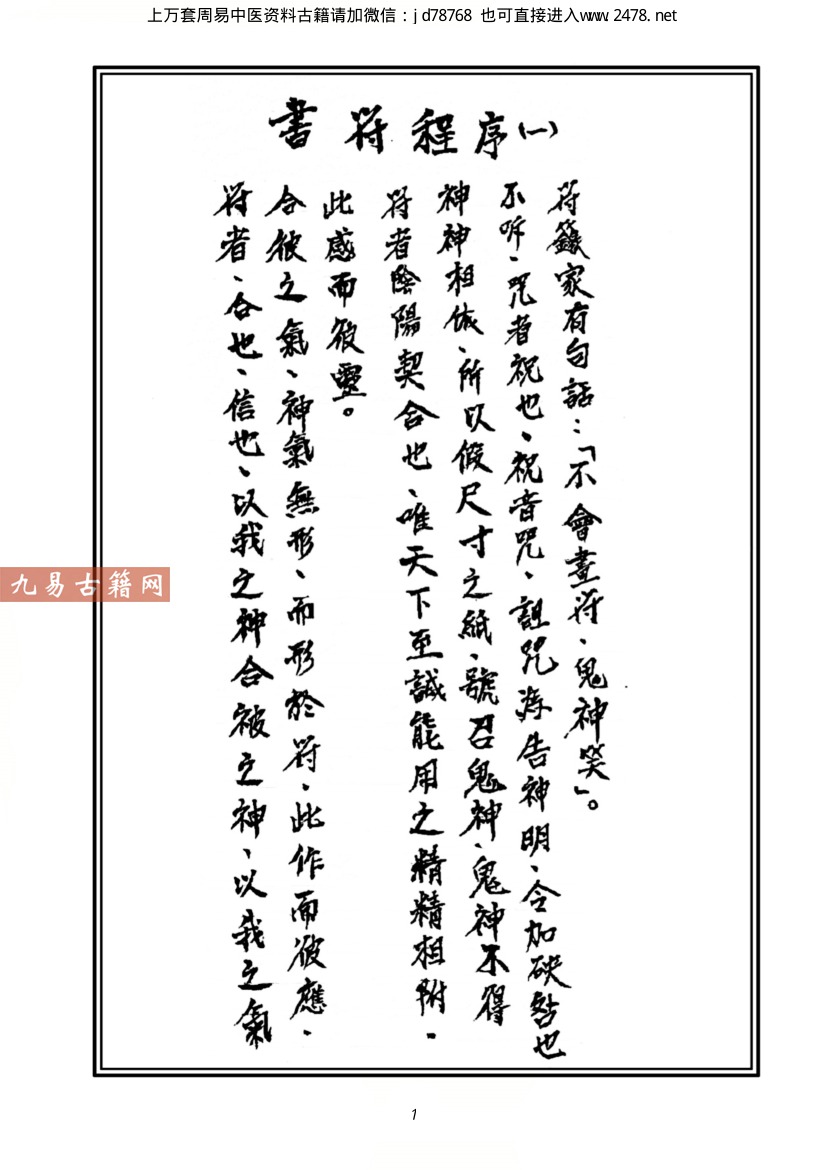 上万套周易中医资料古籍请加微信：jd78768 也可直接进入www.2478.net
書符程序(一)
符籙家有句話：「不會畫符、鬼神笑」。
不听、咒者祝也、祝音咒、詛咒 告神明、令加殃咎也
神神相依、所以假尺寸之紙、號召鬼神、鬼神不得
符者陰陽契合也、唯天下至誠能用之精精相附、
此感而彼靈。
合彼之氣、神氣無形、而形於符、此作而彼應、
符者、合也、信也、以我之神合彼之神、以我之氣
九易古籍网
1